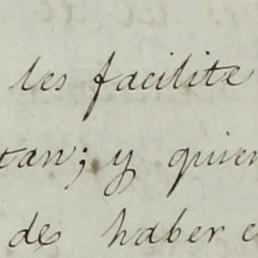 les facilite
tan; y quien
de haber c